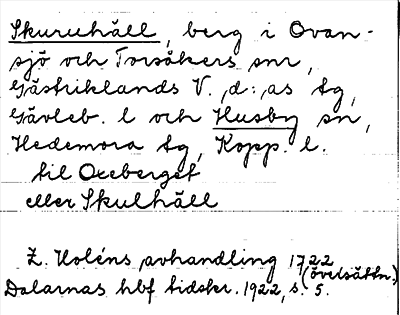 Skuruhäll, berg i Ovan-
sjö och Torsåkers snr,
Gästriklands V. d:as tg,
Gävleb. l och Husby sn,
Hedemora tg, Kopp. l.
till Oxeberget
eller Skulhäll
Z. Holéns avhandling 1722
(översättn.)
Dalarnas hbf tidskr. 1922, s. 5.